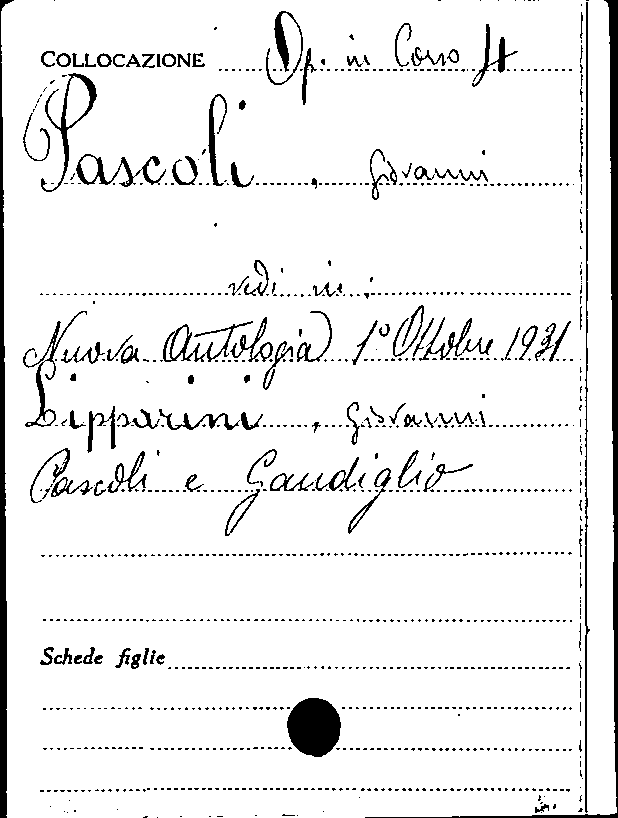 COLLOCAZIONE Op. in Corso 4
Pascoli, Giovanni
vedi in:
Nuova Antologia 1° Ottobre 1931
Lipparini, Giovanni
Pascoli e Gandiglio
Schede figlie